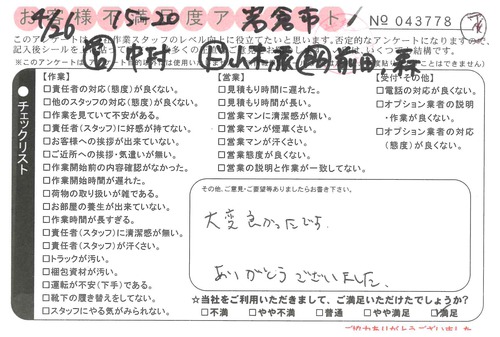 お客様不満足度アンケート
No 043778
4/30 15-20 岩倉市
中村 前田 森
このアンケートは
チェックリスト
【作業】
□責任者の対応(態度)が良くない。
□他のスタッフの対応(態度)が良くない。
□作業を見ていて不安がある。
□責任者(スタッフ)に好感が持てない。
□お客様への挨拶が出来ていない。
□ご近所への挨拶・気遣いが無い。
□作業開始前の内容確認がなかった。
□作業開始時間が遅れた。
□荷物の取り扱いが雑である。
□お部屋の養生が出来ていない。
□作業時間が長すぎる。
□責任者(スタッフ)に清潔感が無い。
□責任者(スタッフ)が汗くさい。
□トラックが汚い。
□梱包資材が汚い。
□運転が不安(下手)である。
□靴下の履き替えをしてない。
□スタッフにやる気がみられない。
【営業】
□見積もり時間に遅れた。
□見積もり時間が長い。
□営業マンに清潔感が無い。
□営業マンが煙草くさい。
□営業マンが汗くさい。
□営業態度が良くない。
□営業の説明と作業が一致してない。
【受付・その他】
□電話の対応が良くない。
□オプション業者の説明
・作業が良くない。
□オプション業者の対応
(態度)が良くない。
その他、ご意見・ご要望等ありましたらお書き下さい。
大変良かったです。
ありがとうございました。
☆当社をご利用いただきまして、ご満足いただけたでしょうか?
□不満 □やや不満 □普通 □やや満足 ☑満足
ご協力ありがとうございました